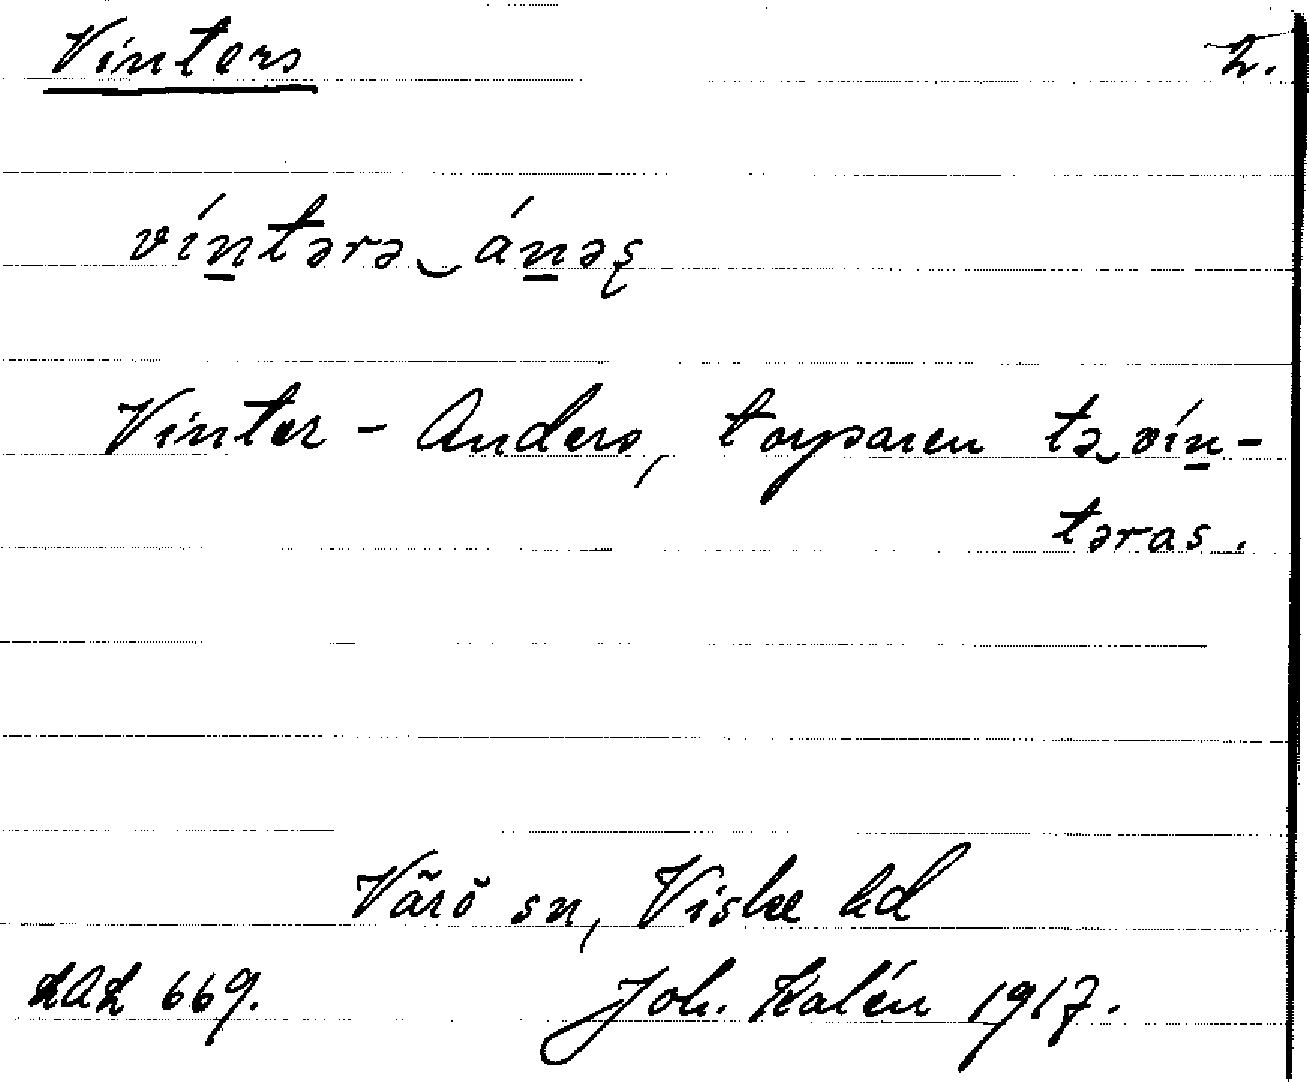 Vinters
vín̲tərə‿án̲əş
Vinter-Anders, torparen tə‿vín̲-
təras.
Värö sn, Viske hd
LAL 669. Joh. Kalén 1917.